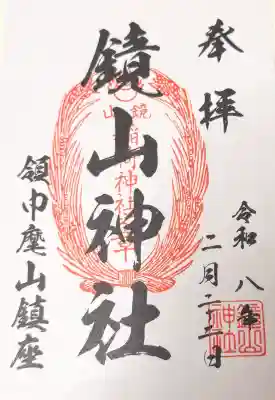 奉拝
令和八年
二月二十二日
鏡山神社
鏡山
稲荷神社
領巾麾山鎮座